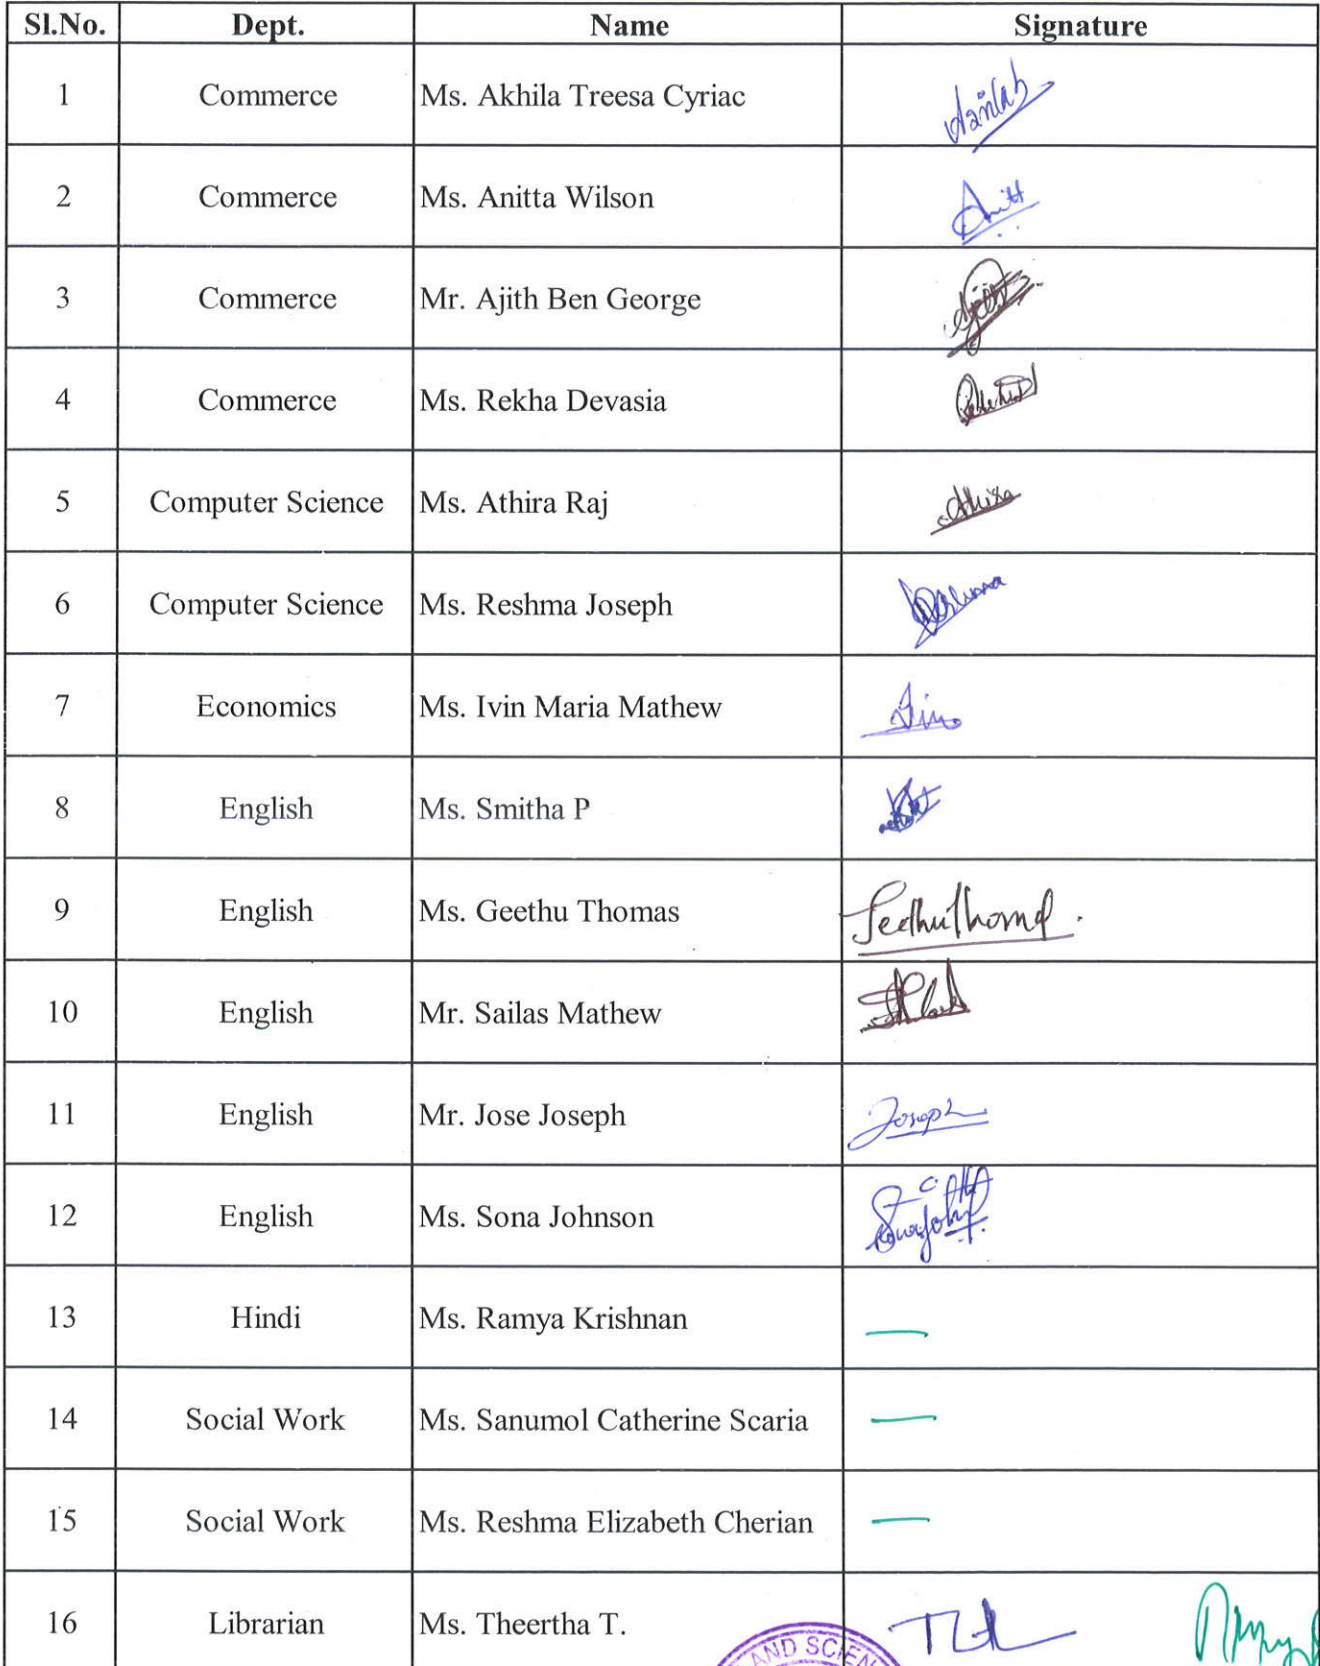 Sl.No. Dept. Name Signature
1 Commerce Ms. Akhila Treesa Cyriac
2 Commerce Ms. Anitta Wilson
3 Commerce Mr. Ajith Ben George
4 Commerce Ms. Rekha Devasia
5 Computer Science Ms. Athira Raj Athira
6 Computer Science Ms. Reshma Joseph
7 Economics Ms. Ivin Maria Mathew
8 English Ms. Smitha P
9 English Ms. Geethu Thomas
10 English Mr. Sailas Mathew
11 English Mr. Jose Joseph Joseph
12 English Ms. Sona Johnson
13 Hindi Ms. Ramya Krishnan —
14 Social Work Ms. Sanumol Catherine Scaria —
15 Social Work Ms. Reshma Elizabeth Cherian —
16 Librarian Ms. Theertha T.
AND SCIEN